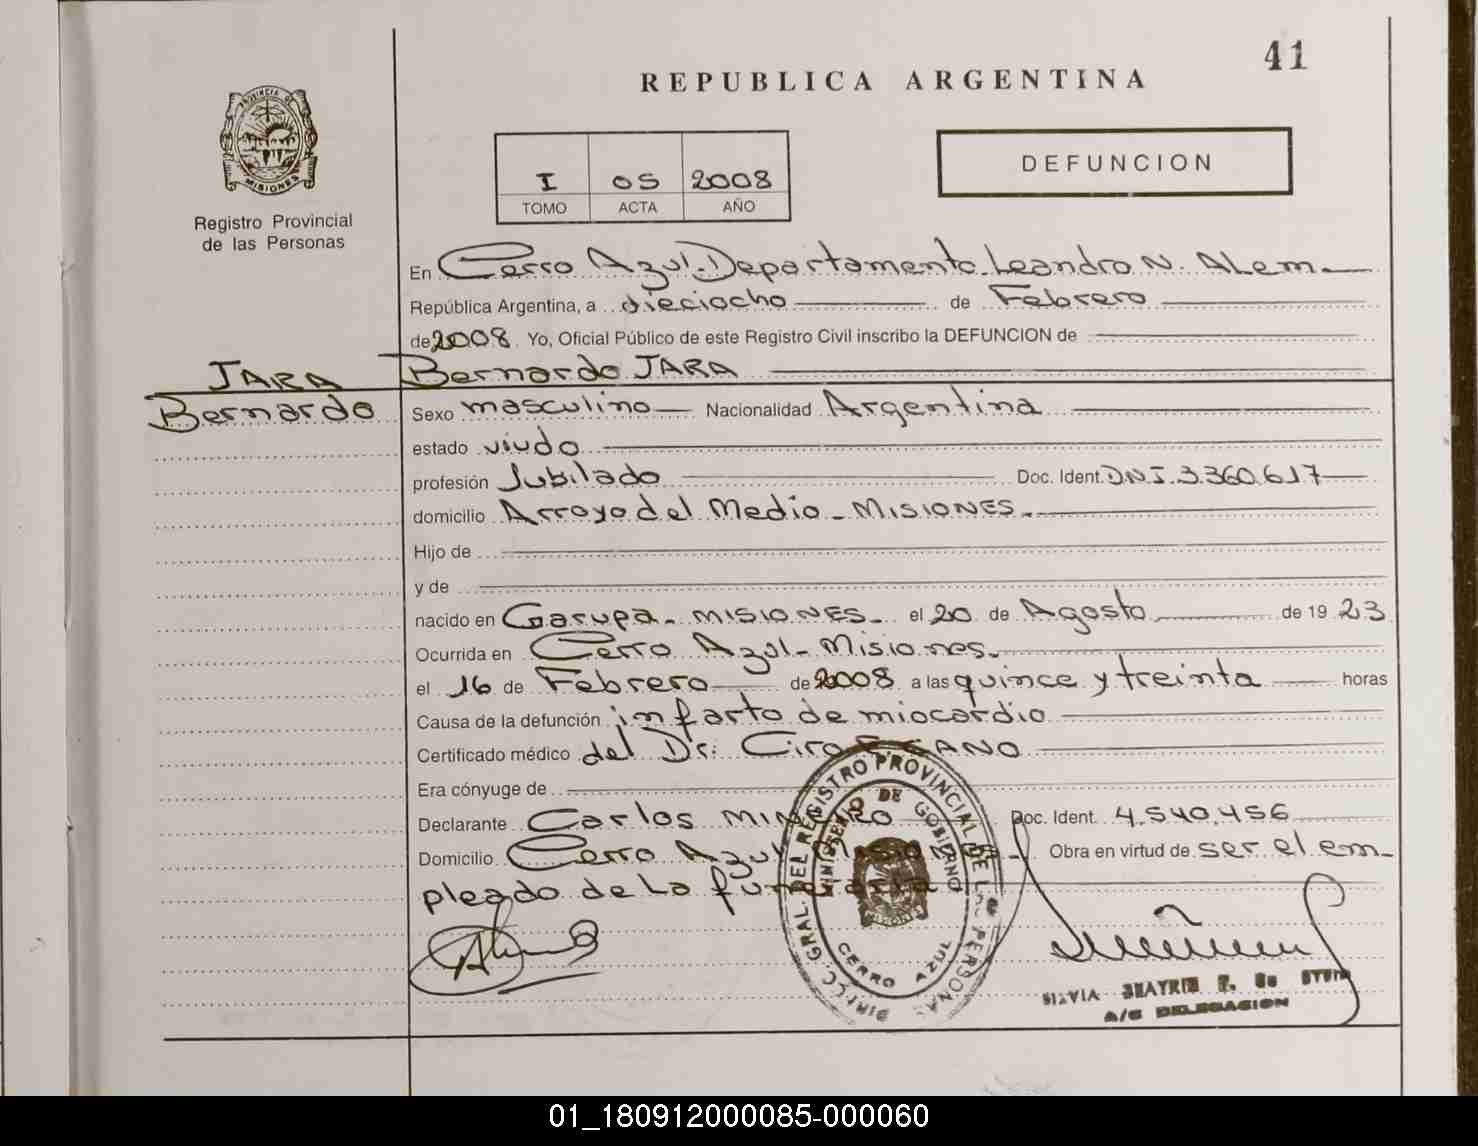 41
REPUBLICA ARGENTINA
PROVINCIA DE
MISIONES
Registro Provincial
de las Personas
I 05 2008
TOMO ACTA AÑO
DEFUNCION
En Cerro Azul. Departamento Leandro N. Alem
República Argentina, a dieciocho de Febrero
de 2008. Yo, Oficial Público de este Registro Civil inscribo la DEFUNCION de
JARA Bernardo JARA
Bernardo Sexo masculino Nacionalidad Argentina
estado viudo
profesión Jubilado Doc. Ident. D.N.I. 3.360.617
domicilio Arroyo del Medio - MISIONES.
Hijo de
y de
nacido en Garupa - MISIONES - el 20 de Agosto de 1923
Ocurrida en Cerro Azul - Misiones.
el 16 de Febrero de 2008 a las quince y treinta horas
Causa de la defunción infarto de miocardio
Certificado médico del Dr: Ciro CANO
Era cónyuge de
Declarante Carlos Doc. Ident. 4.540.456
Domicilio Cerro Azul Obra en virtud de ser el em-
pleado de La
DIRECC. GRAL. DEL REGISTRO PROVINCIAL DE LAS PERSONAS
MINISTERIO DE GOBIERNO
CERRO AZUL
SILVIA BEATRIZ
A/C DELEGACION
01_180912000085-000060